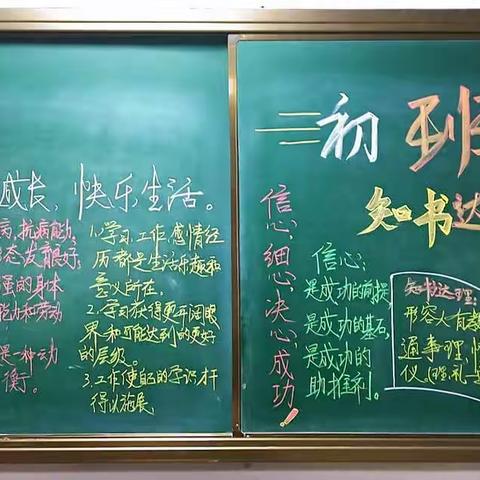 成长，快乐生活。
病，抗病能力，
态发育良好；
强的身体
能力和劳动
是一种动
衡。
1.学习、工作、感情经
历都是生活乐趣和
意义所在，
2.学习获得更开阔眼
界和可能达到的更好
的层级。
3.工作使自己的学识才
得以施展
二初班
知书达
信心，细心，决心，成功！
信心：
是成功的前提
是成功的基石，
是成功的
助推剂。
知书达理：
形容人有教
通事理，懂
仪。(理，礼